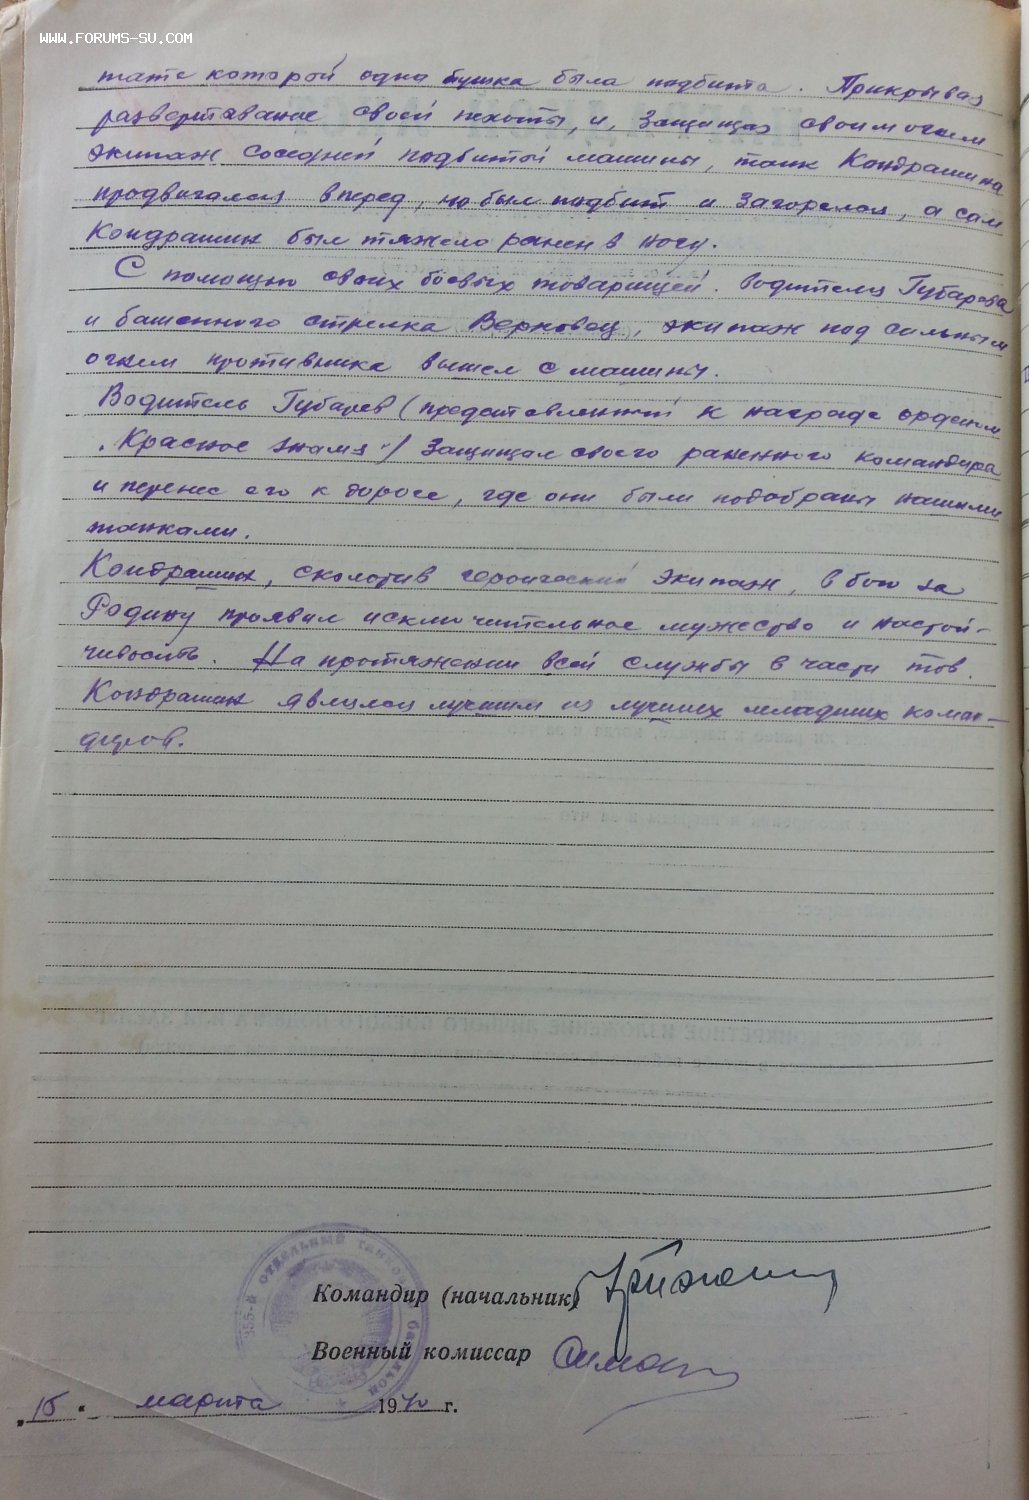 WWW.FORUMS-SU.COM
тате которой одна пушка была подбита. Прикрывая
развертавание своей пехоты, и, защищая своим огнем
экипаж соседней подбитой машины, танк Кондрашина
продвигался вперед, но был подбит и загорелся, а сам
Кондрашин был тяжело ранен в ногу.
С помощью своих боевых товарищей. водителя Губарева
и башенного стрелка Верховец, экипаж под сильным
огнем противника вышел с машины.
Водитель Губарев (представленный к награде орденом
"Красное знамя") защищал своего раненного командира
и перенес его к дороге, где они были подобраны нашими
танками.
Кондрашин, сколотив героический экипаж, в бою за
Родину проявил исключительное мужество и настой-
чивость. На протяжении всей службы в части тов.
Кондрашин являлся лучшим из лучших младших коман-
диров.
355-й отдельный танков батальон
Командир (начальник)
Военный комиссар
"15" марта 1940 г.